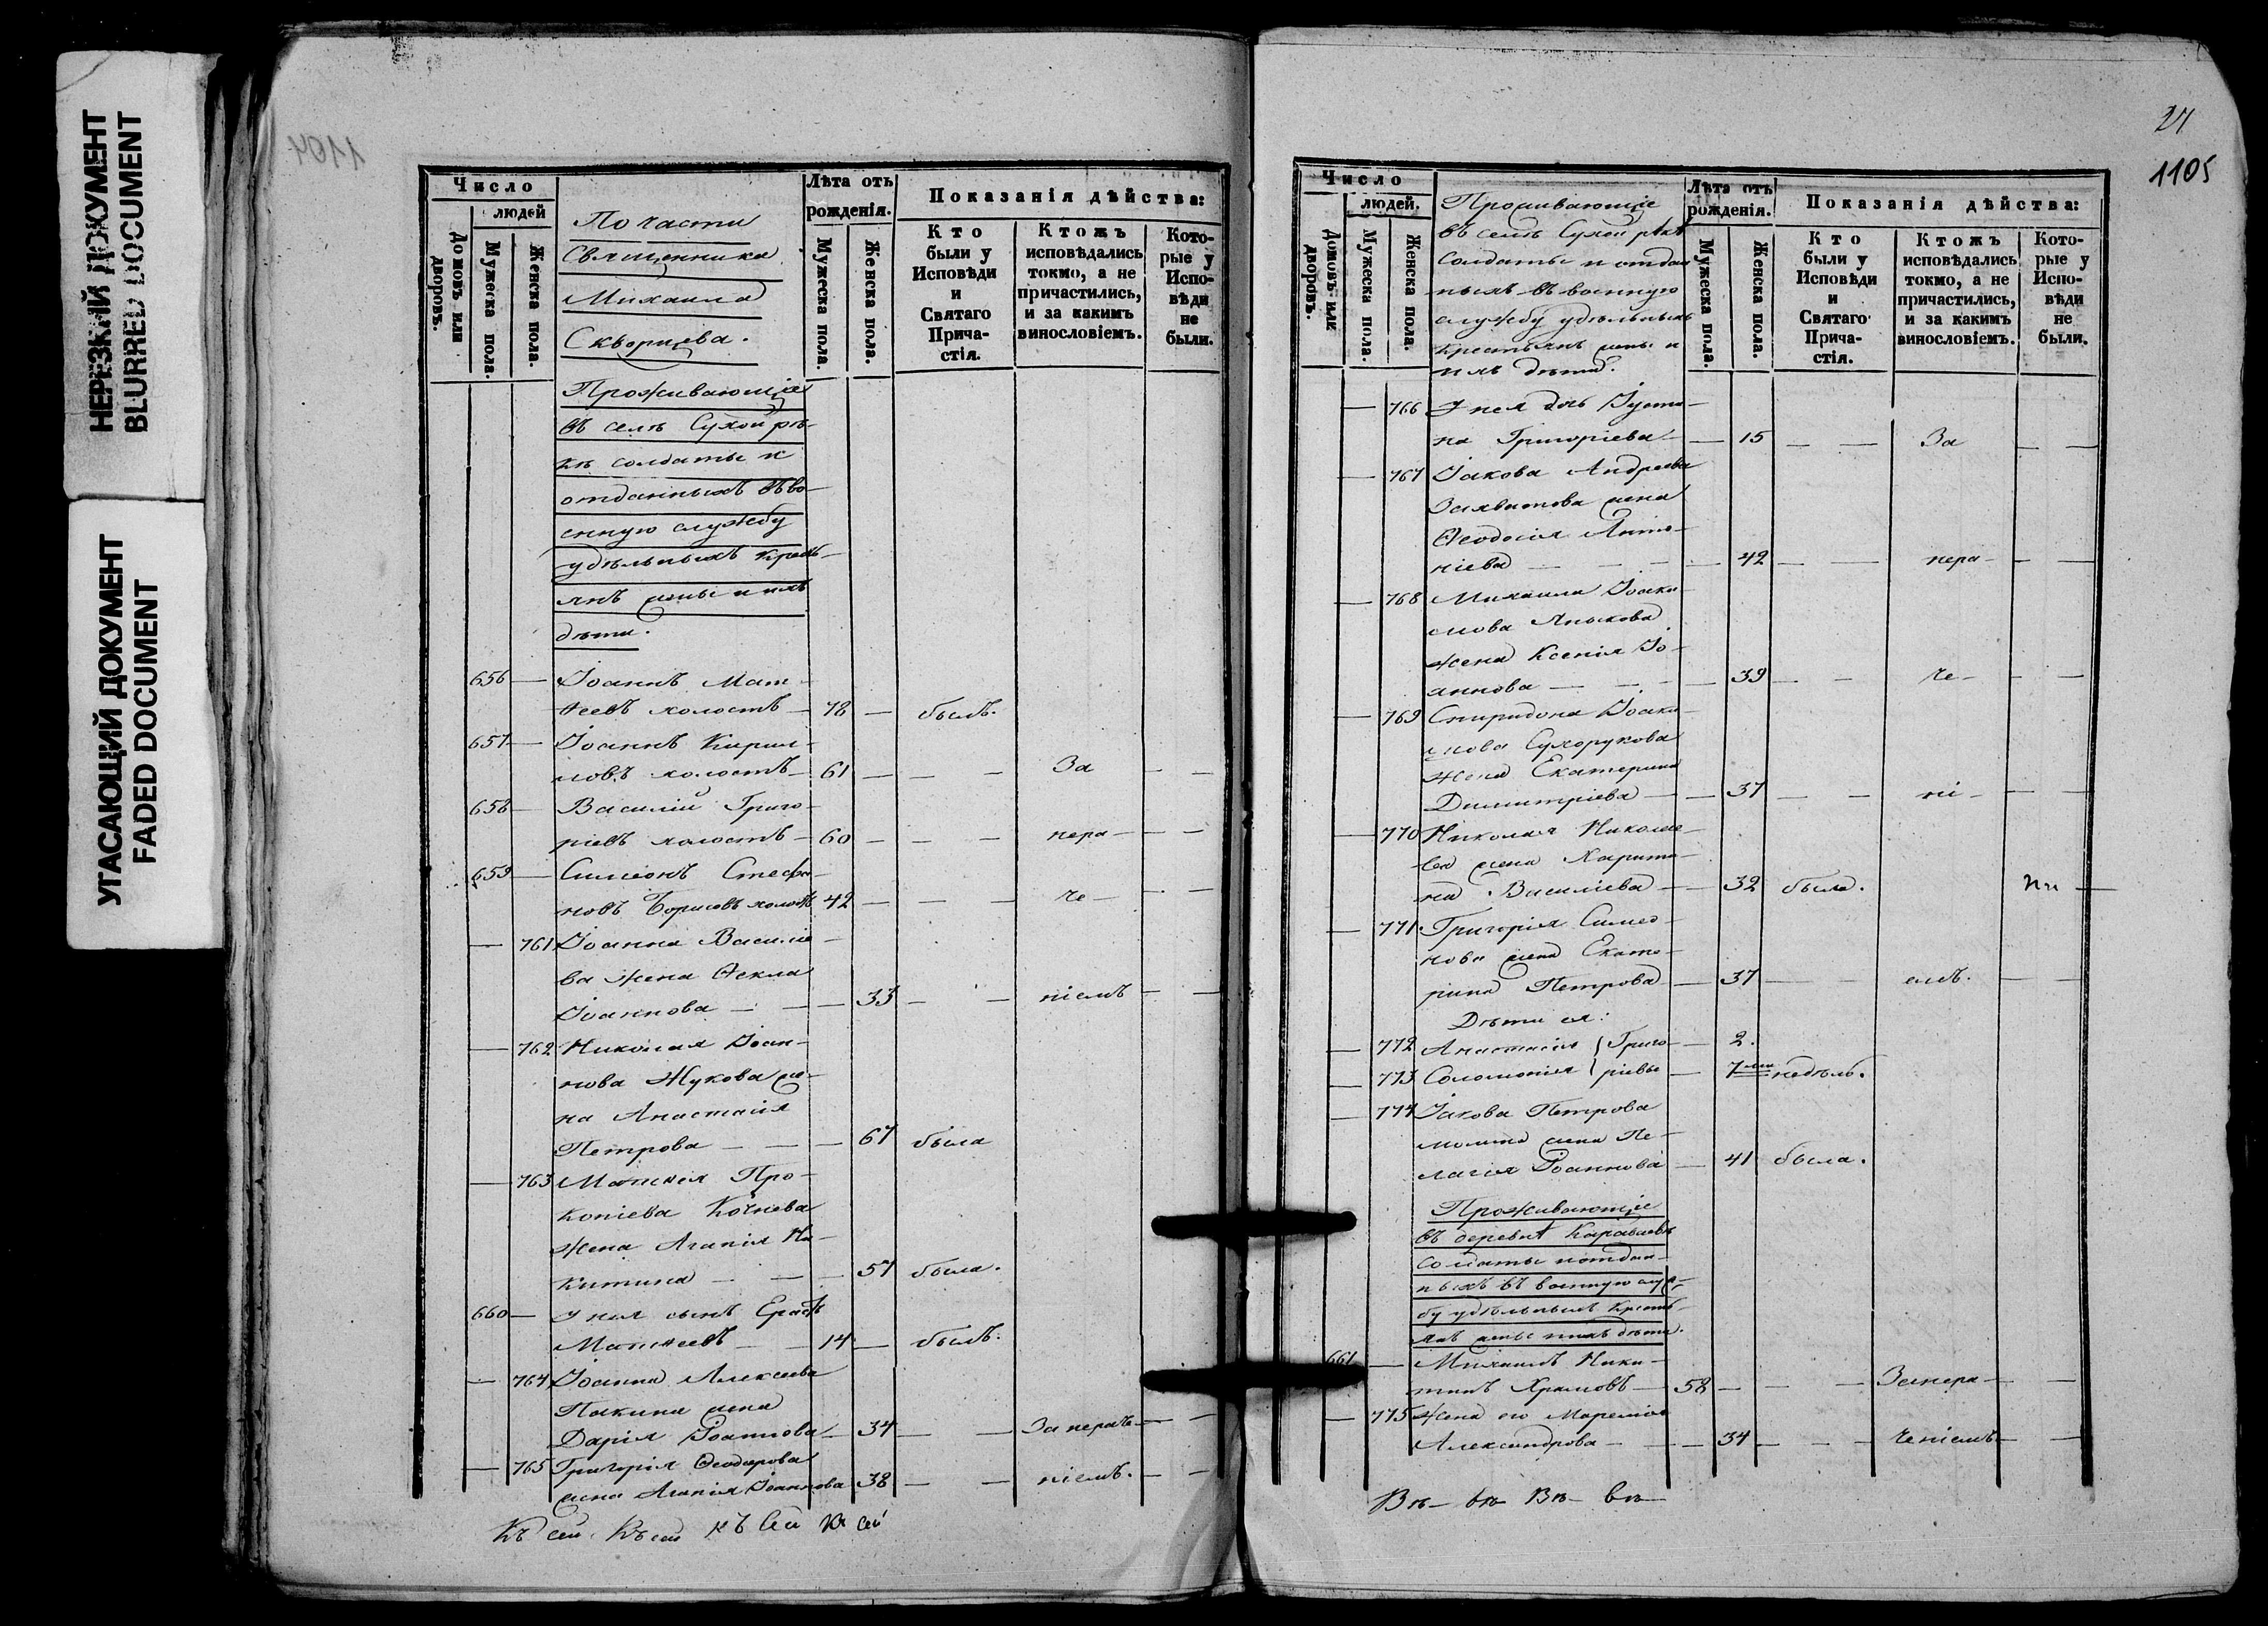 НЕРЕЗКИЙ ДОКУМЕНТ
BLURRED DOCUMENT
УГАСАЮЩИЙ ДОКУМЕНТ
FADED DOCUMENT
1104
Число
людей
Домовъ или дворовъ.
Мужеска пола.
Женска пола.
По части
Священника
Михаила
Скворцева.
Лѣта отъ
рожденія.
Мужеска пола.
Женска пола.
Показанія дѣйства:
Кто
были у
Исповѣди
и
Святаго
Прича-
стія.
Ктожъ
исповѣдались
токмо, а не
причастились,
и за какимъ
винословіемъ.
Кото-
рые у
Испо-
вѣди
не
были.
Проживающіе
въ селѣ Сухой рѣ-
кѣ солдаты и
отданныхъ въ во-
енную службу
удѣльныхъ кресть-
янъ жены и ихъ
дѣти.
656 — Іоаннъ Мат-
ѳеевъ холостъ — 78 — былъ.
657 — Іоаннъ Кирил-
ловъ холостъ — 61 — — — За — —
658 — Василій Григо-
ріевъ холостъ — 60 — — — нера — — —
659 — Симеонъ Стефа-
новъ Борисовъ холостъ 42 — — — че — — —
— 761 Іоанна Василіе-
ва жена Ѳекла
Іоаннова — — — 33 — — ніемъ — —
— 762 Николая Іоан-
нова Жукова же-
на Анастасія
Петрова — — — 67 была
— 763 Матѳея Про-
копіева Кочнева
жена Агапія Ни-
китина — — — 57 была.
660 — У нея сынъ Ерастъ
Матѳеевъ — — 14 — былъ.
— 764 Іоанна Алексеева
Пакина жена
Дарія Іоаннова — 34 — — За нераче — —
— 765 Григорія Ѳеодорова
жена Агапія Іоаннова 38 — — ніемъ. — —
Къ сей Къ сей къ сей къ сей
24
1105
Число
людей.
Домовъ или дворовъ.
Мужеска пола.
Женска пола.
Проживающіе
въ селѣ Сухой рѣкѣ
солдаты и отдан
ныхъ въ военную
службу удѣльныхъ
крестьянъ жены и
ихъ дѣти.
Лѣта отъ
рожденія.
Мужеска пола.
Женска пола.
Показанія дѣйства:
Кто
были у
Исповѣди
и
Святаго
Прича-
стія.
Ктожъ
исповѣдались
токмо, а не
причастились,
и за какимъ
винословіемъ.
Кото-
рые у
Испо-
вѣди
не
были.
— 766 У нея дочь Іусти-
на Григоріева — — 15 — — За — —
— 767 Іакова Андреева
жена
Ѳеодосія Анто-
ніева — — — — 42 — — нера — — —
— 768 Михаила Іоаки-
мова
жена Ксенія Іо-
аннова — — — — 39 — — че — — —
— 769 Спиридона Іоаки-
мова Сухорукова
жена Екатерина
Димитріева — — 37 — — ні — — —
— 770 Николая Николае-
ва жена Харити-
на Василіева — — 32 была. —
— 771 Григорія Симео-
нова жена Екате-
рина Петрова — — 37 — — емъ. — —
Дѣти ея:
— 772 Анастасія } Григо- — 2.
— 773 Соломонія } ріевы — 7ми недѣль.
— 774 Іакова Петрова
жена Пе-
лагія Іоаннова — 41 была.
Проживающіе
въ деревнѣ Караваевѣ
солдаты и отдан-
ныхъ въ военную служ-
бу удѣльныхъ кресть-
янъ жены и ихъ дѣти.
661 — Михаилъ Ники-
тинъ Храмовъ — 58 — — — За нера — —
— 775 Жена его
Александрова — — — 34 — — — ченіемъ — —
Вѣ — вѣ Вѣ — вѣ —